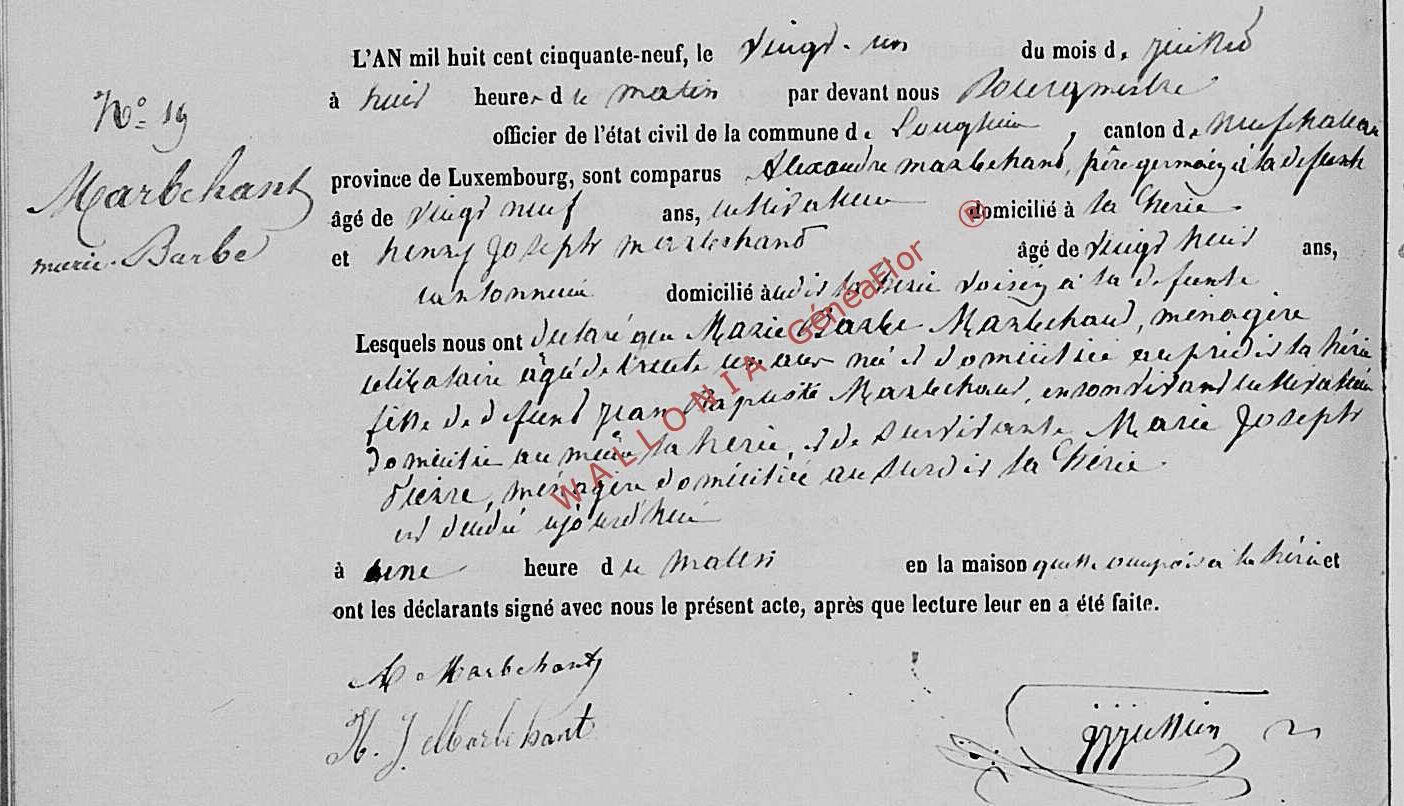 N° 19
Marbehant
marie-Barbe
L'AN mil huit cent cinquante-neuf, le vingt-un du mois de juillet
à huit heures de le matin par devant nous Bourgmestre
officier de l'état civil de la commune de Longlier, canton de neufchateau
province de Luxembourg, sont comparus Alexandre marbehant, frère germain à la defunte
âgé de vingt neuf ans, cultivateur domicilié à la hérie
et henry joseph marbehand âgé de vingt huit ans,
cantonnier domicilié à udit la hérie voisin à la defunte
Lesquels nous ont declaré que Marie Barbe Marbehand, ménagère
celibataire agée de trente un ans née et domiciliée au predit la hérie
fille de defunt jean Baptiste Marbehand, en son vivant cultivateur
domicilié au même la herie, et de survivante Marie Joseph
Pierre, ménagère domiciliée au surdit la hérie
est decedé ajourd'hui
à une heure de le matin en la maison quelle occupait à la hérie et
ont les déclarants signé avec nous le présent acte, après que lecture leur en a été faite.
A Marbehant
H. J Marbehant
WALLONIA GénéaFlor ®